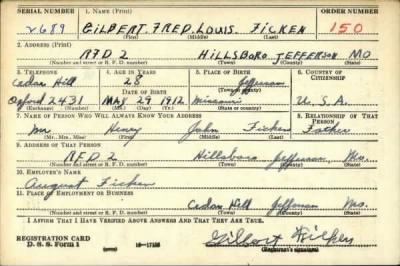 SERIAL NUMBER 1. NAME (Print) ORDER NUMBER
2689 GILBERT. FRED. LOUIS. FICKEN 150
(First) (Middle) (Last)
2. ADDRESS (Print)
RFD 2 HILLSBORO JEFFERSON MO
(Number and street or R. F. D. number) (Town) (County) (State)
3. TELEPHONE 4. AGE IN YEARS 5. PLACE OF BIRTH 6. COUNTRY OF CITIZENSHIP
Cedar Hill 28 Jefferson
DATE OF BIRTH (Town or county)
Oxford 2431 MAY 29 1912 Missouri U.S.A.
(Exchange) (Number) (Mo.) (Day) (Yr.) (State or country)
7. NAME OF PERSON WHO WILL ALWAYS KNOW YOUR ADDRESS 8. RELATIONSHIP OF THAT PERSON
Mr Henry John Ficken Father
(Mr., Mrs., Miss) (First) (Middle) (Last)
9. ADDRESS OF THAT PERSON
R.F.D. 2 Hillsboro Jefferson, Mo.
(Number and street or R. F. D. number) (Town) (County) (State)
10. EMPLOYER'S NAME
August Ficken
11. PLACE OF EMPLOYMENT OR BUSINESS
Cedar Hill Jefferson Mo.
(Number and street or R. F. D. number) (Town) (County) (State)
I AFFIRM THAT I HAVE VERIFIED ABOVE ANSWERS AND THAT THEY ARE TRUE.
REGISTRATION CARD
D. S. S. Form 1 16-17105 Gilbert Ficken
(Registrant's signature)